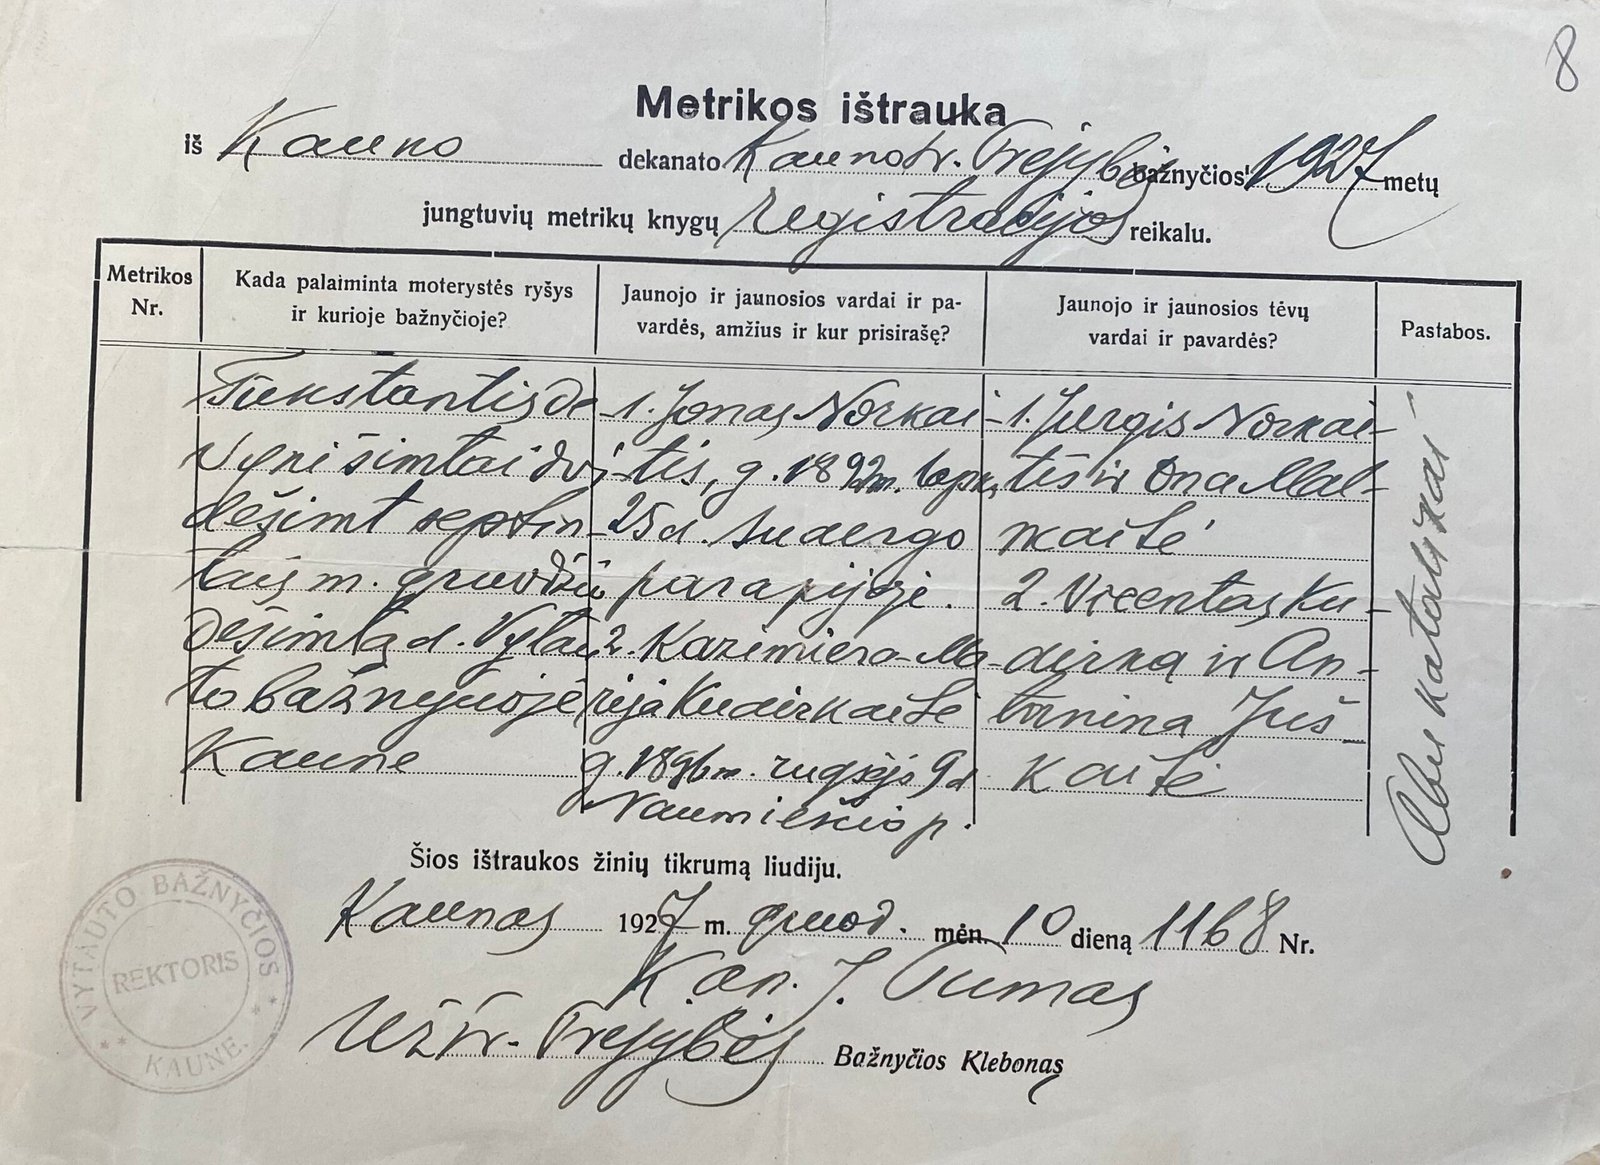 8
Metrikos ištrauka
iš Kauno dekanato Kauno šv. Trejybės bažnyčios 1927 metų
jungtuvių metrikų knygų registracijos reikalu.
Metrikos
Nr.
Kada palaiminta moterystės ryšys
ir kurioje bažnyčioje?
Jaunojo ir jaunosios vardai ir pa-
vardės, amžius ir kur prisirašę?
Jaunojo ir jaunosios tėvų
vardai ir pavardės?
Pastabos.
Tūkstantis de
vyni šimtai dvi
dešimt septin
tais m. gruodžio
dešimtą d. Vytau
to bažnyčioje
Kaune
1. Jonas Norkai-
tis, g. 1892 m.
25 d. Sudergo
parapijoje.
2. Kazimiera-Ma-
rija Kudirkaitė
g. 1896 m. rugsėjo 9 d
Naumiesčio p.
1. Jurgis Norkai-
tis ir Ona Mal-
kaitė
2. Vicentas Ku-
dirka ir An-
tonina Juš-
kaitė
Abu katalikai
Šios ištraukos žinių tikrumą liudiju.
Kaunas 1927 m. gruod. mėn. 10 dieną 1168 Nr.
Kan. J. Tumas
Trejybės Bažnyčios Klebonas
VYTAUTO BAŽNYČIOS
REKTORIS
KAUNE.